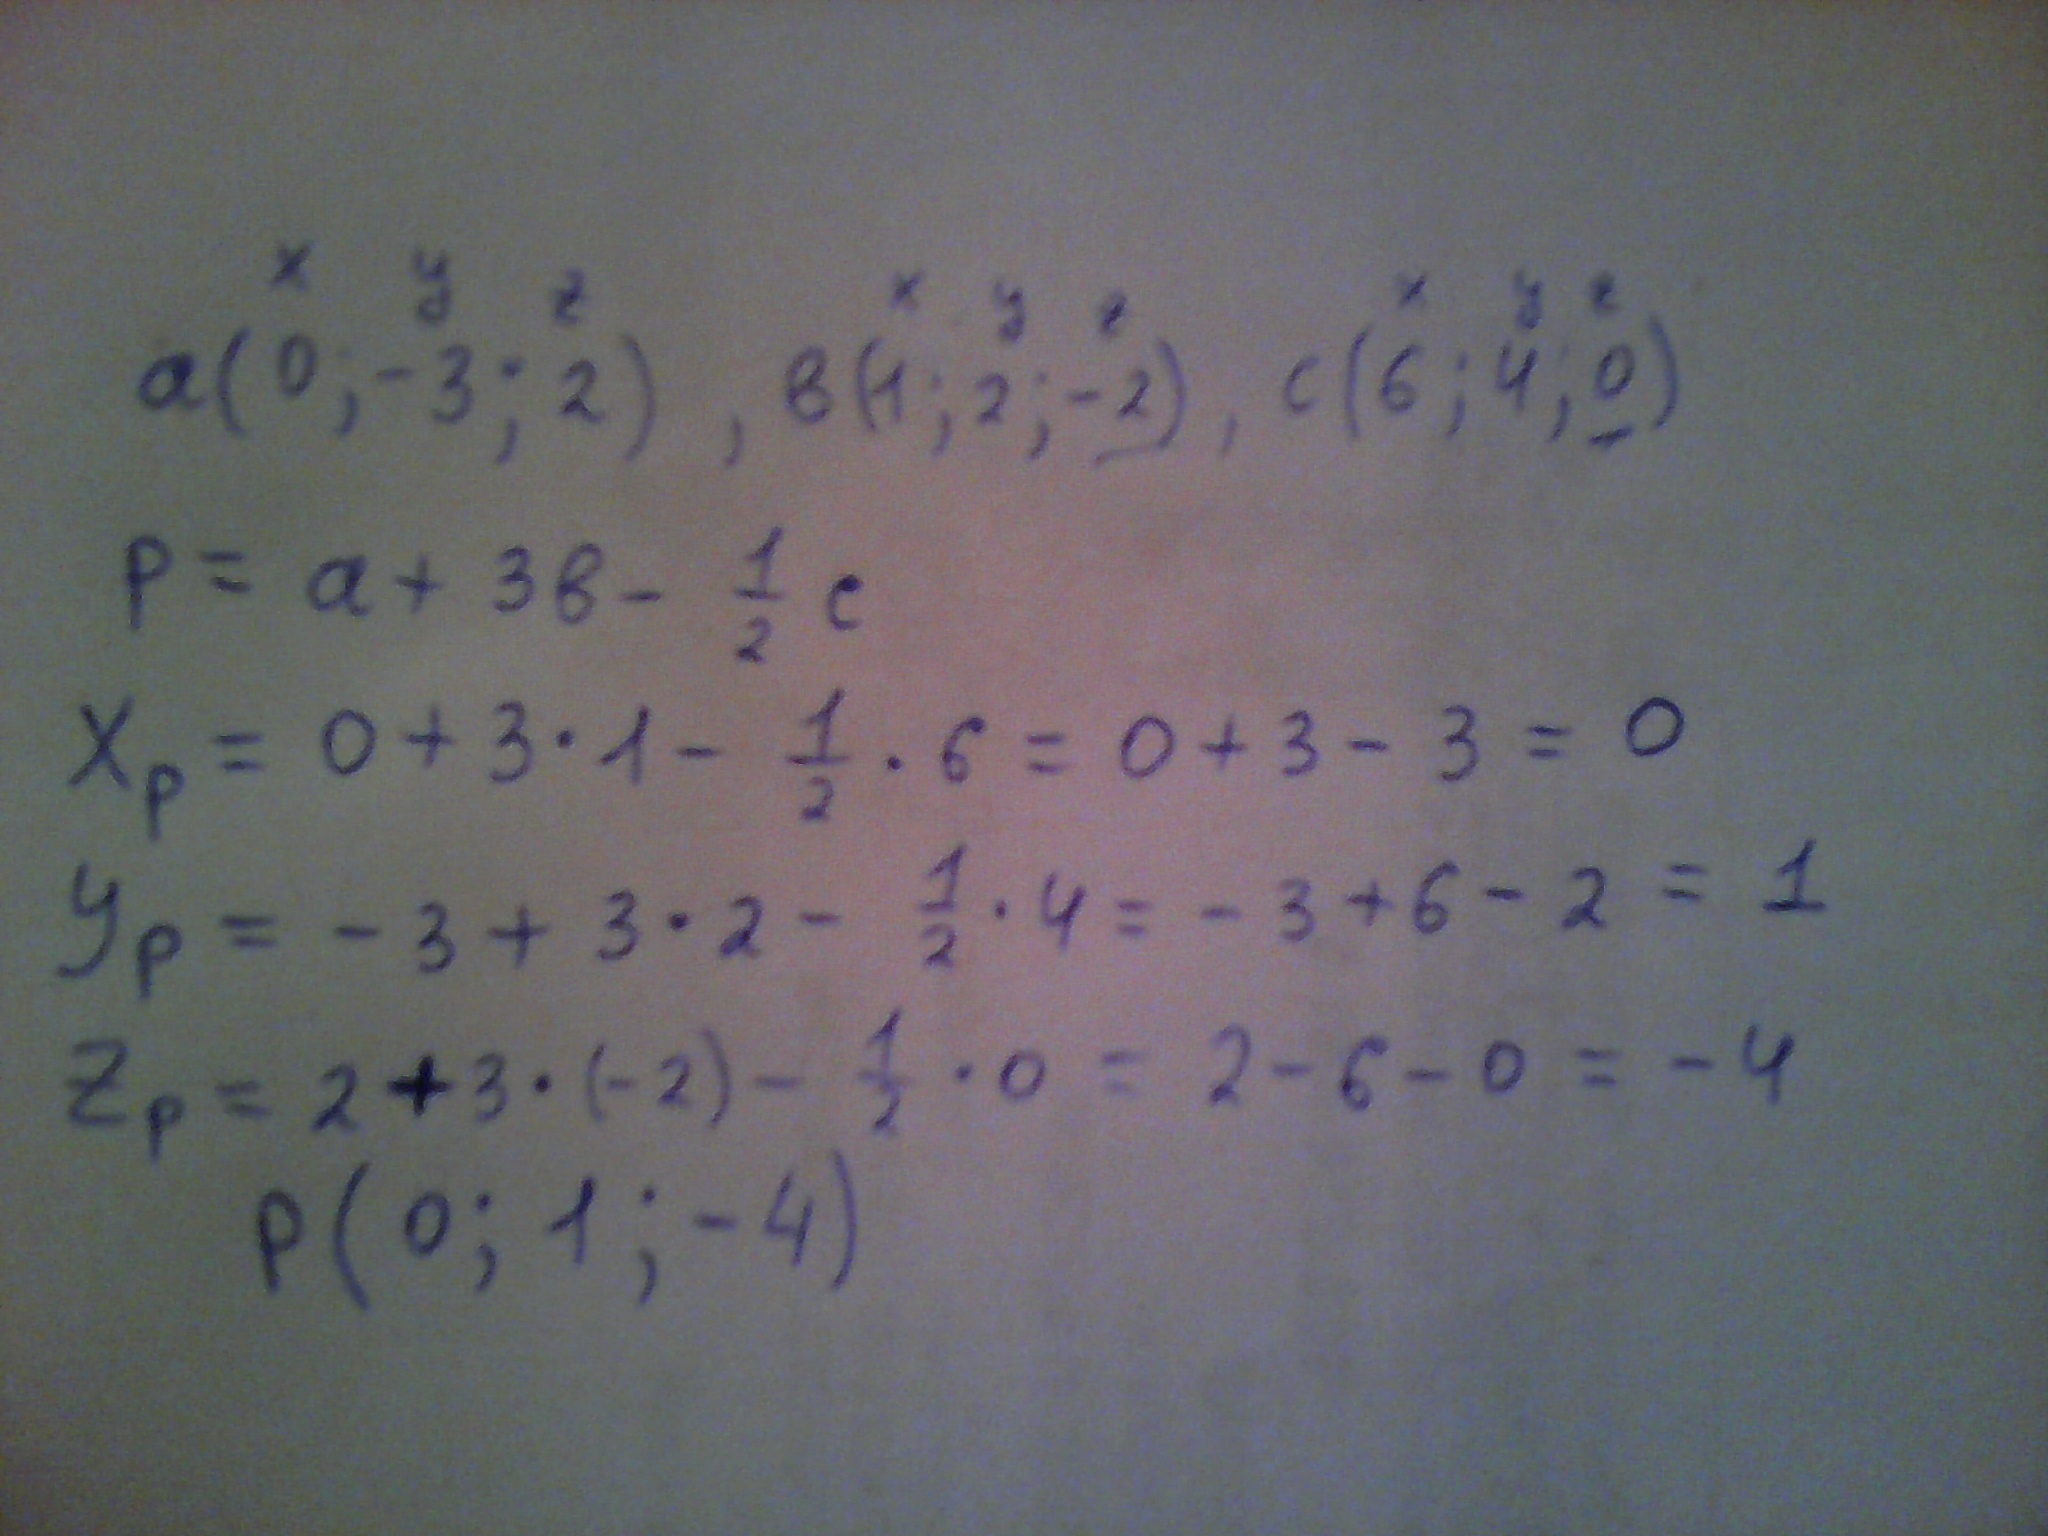 x y z x y z x y z
a(0;-3;2), в(1;2;-2), c(6;4;0)
p = a + 3в - 1/2 c
Xp = 0 + 3·1 - 1/2 · 6 = 0 + 3 - 3 = 0
yp = -3 + 3·2 - 1/2 · 4 = -3 + 6 - 2 = 1
Zp = 2 + 3·(-2) - 1/2 · 0 = 2 - 6 - 0 = -4
p(0; 1; -4)